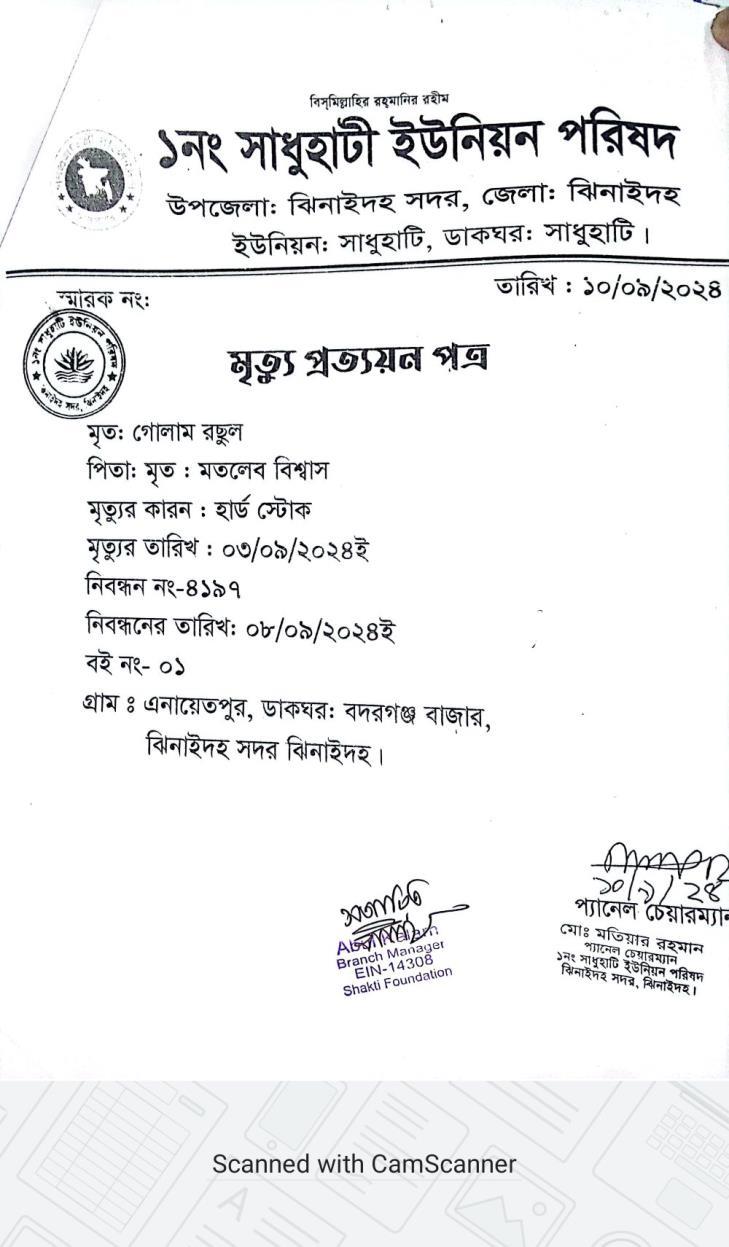 বিস্‌মিল্লাহির রহমানির রহীম
১নং সাধুহাটী ইউনিয়ন পরিষদ
উপজেলা: ঝিনাইদহ সদর, জেলা: ঝিনাইদহ
ইউনিয়ন: সাধুহাটি, ডাকঘর: সাধুহাটি।
স্মারক নং:
তারিখ : ১০/০৯/২০২৪
১নং সাধুহাটি ইউনিয়ন পরিষদ
ঝিনাইদহ সদর, ঝিনাইদহ
মৃত্যু প্রত্যয়ন পত্র
মৃত: গোলাম রছুল
পিতা: মৃত : মতলেব বিশ্বাস
মৃত্যুর কারন : হার্ড স্টোক
মৃত্যুর তারিখ : ০৩/০৯/২০২৪ই
নিবন্ধন নং-৪১৯৭
নিবন্ধনের তারিখ: ০৮/০৯/২০২৪ই
বই নং- ০১
গ্রাম ঃ এনায়েতপুর, ডাকঘর: বদরগঞ্জ বাজার,
ঝিনাইদহ সদর ঝিনাইদহ।
Branch Manager
EIN-14308
Shakti Foundation
১০/৯/২৪
প্যানেল চেয়ারম্যান
মোঃ মতিয়ার রহমান
প্যানেল চেয়ারম্যান
১নং সাধুহাটি ইউনিয়ন পরিষদ
ঝিনাইদহ সদর, ঝিনাইদহ।
Scanned with CamScanner